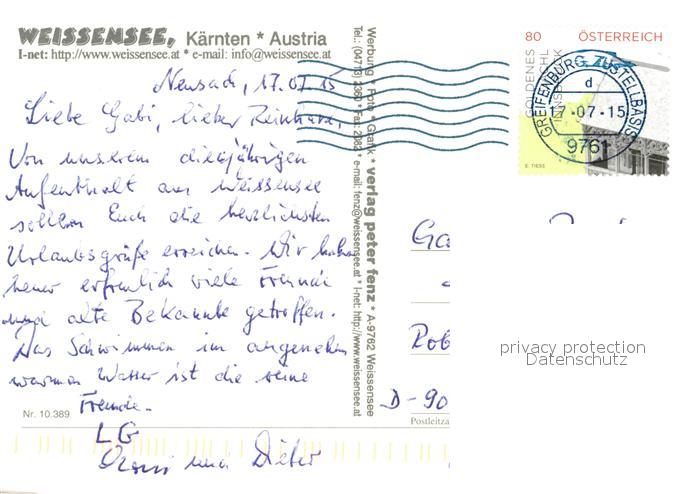 WEISSENSEE, Kärnten * Austria
I-net: http://www.weissensee.at * e-mail: info@weissensee.at
Neusach, 17.07.15
Liebe Gabi, lieber Reinhard,
Von unserem diesjährigen
Aufenthalt am Weissensee
sollen Euch die herzlichsten
Urlaubsgrüße erreichen. Wir haben
heuer erfreulich viele Freunde
und alte Bekannte getroffen.
Das Schwimmen im angenehm
warmen Wasser ist die reine
Freude.
LG
und Dieter
Nr. 10.389
Werbung * Foto * Grafik * verlag peter fenz * A-9762 Weissensee
Tel.: (04713) 2360 * Fax: 2082 * e-mail: fenz@weissensee.at * I-net: http://www.weissensee.at
80 ÖSTERREICH
GOLDENES
E. TIESE
GREIFENBURG, ZUSTELLBASIS
d
17-07-15
9761
Ga
Rob
D-90
Postleitza
privacy protection
Datenschutz